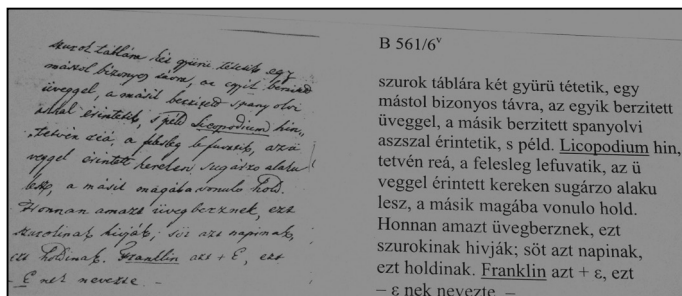 szurok táblára két gyürü tétetik, egy
mástol bizonyos távra, az egyik berzitett
üveggel, a másik berzitett spanyolvi
aszszal érintetik, s péld. Licopodium hin,
tetvén reá, a felesleg lefuvatik, az ü
veggel érintett kereken sugárzo alaku
lesz, a másik magába vonulo hold.
Honnan amazt üvegberznek, ezt
szurokinak hivják; söt azt napinak,
ezt holdinak. Franklin azt + ε, ezt
– ε nek nevezte. –
B 561/6v
szurok táblára két gyürü tétetik, egy
mástol bizonyos távra, az egyik berzitett
üveggel, a másik berzitett spanyolvi
aszszal érintetik, s péld. Licopodium hin,
tetvén reá, a felesleg lefuvatik, az ü
veggel érintett kereken sugárzo alaku
lesz, a másik magába vonulo hold.
Honnan amazt üvegberznek, ezt
szurokinak hivják; söt azt napinak,
ezt holdinak. Franklin azt + ε, ezt
– ε nek nevezte. –